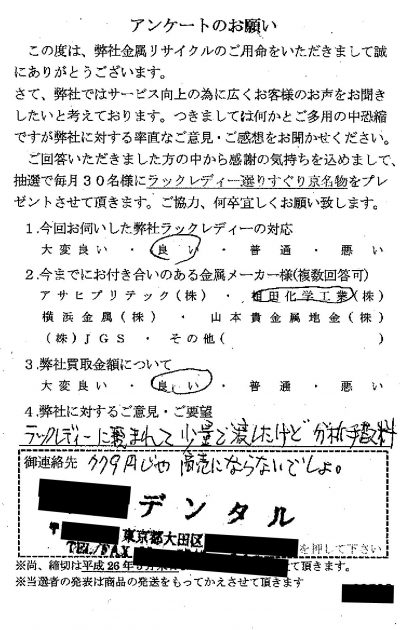 アンケートのお願い
この度は、弊社金属リサイクルのご用命をいただきまして誠
にありがとうございます。
さて、弊社ではサービス向上の為に広くお客様のお声をお聞き
したいと考えております。つきましては何かとご多用の中恐縮
ですが弊社に対する率直なご意見・ご感想をお聞かせください。
ご回答いただきました方の中から感謝の気持ちを込めまして、
抽選で毎月30名様にラックレディー選りすぐり京名物をプレ
ゼントさせて頂きます。ご協力、何卒宜しくお願い致します。
1.今回お伺いした弊社ラックレディーの対応
大変良い ・ 良い ・ 普通 ・ 悪い
2.今までにお付き合いのある金属メーカー様(複数回答可)
アサヒプリテック(株) ・ 相田化学工業(株)
横浜金属(株) ・ 山本貴金属地金(株)
(株)JGS ・ その他( )
3.弊社買取金額について
大変良い ・ 良い ・ 普通 ・ 悪い
4.弊社に対するご意見・ご要望
ラックレディーに頼まれて少量で渡したけど 分析手数料
御連絡先
円じゃ 商売にならないでしょ。
デンタル
〒 東京都大田区
TEL/FAX
を押して下さい
※尚、締切は平成26年 て頂きます。
※当選者の発表は商品の発送をもってかえさせて頂きます